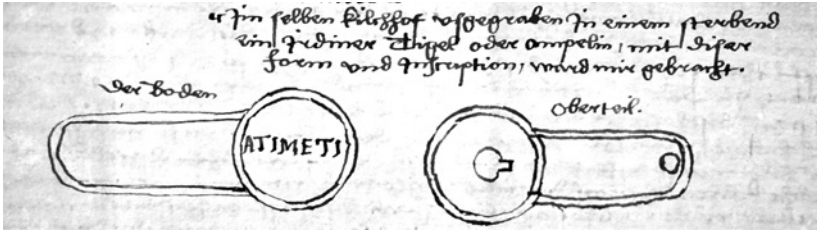 Jm selben kilchhof vsgegraben Jn einem sterbend
ein Jrdiner Tigel oder ampelin, mit diser
form vnd Jnscription, ward mir gebracht.
der boden
oberteil.
ATIMETI